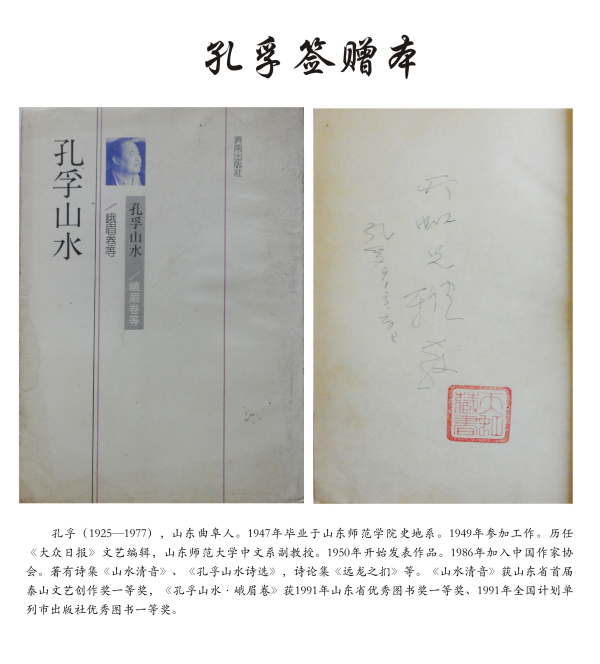 孔孚签赠本
孔孚山水
╱峨眉卷等
孔孚山水╱峨眉卷等
济南出版社
兄雅教
孔孚
大虹
藏書
孔孚（1925—1977），山东曲阜人。1947年毕业于山东师范学院史地系。1949年参加工作。历任
《大众日报》文艺编辑，山东师范大学中文系副教授。1950年开始发表作品。1986年加入中国作家协
会。著有诗集《山水清音》、《孔孚山水诗选》，诗论集《远龙之扪》等。《山水清音》获山东省首届
泰山文艺创作奖一等奖，《孔孚山水·峨眉卷》获1991年山东省优秀图书奖一等奖、1991年全国计划单
列市出版社优秀图书一等奖。